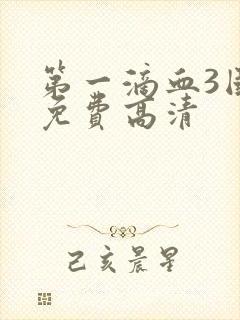 第一滴血3
免费高清
己亥晨星